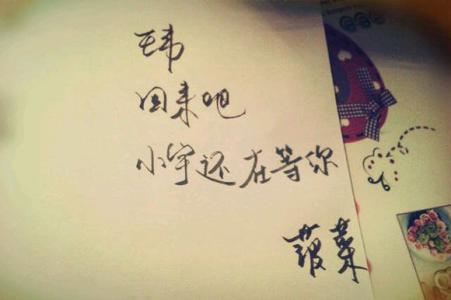 玮
回来吧
小宇还在等你
菠菜